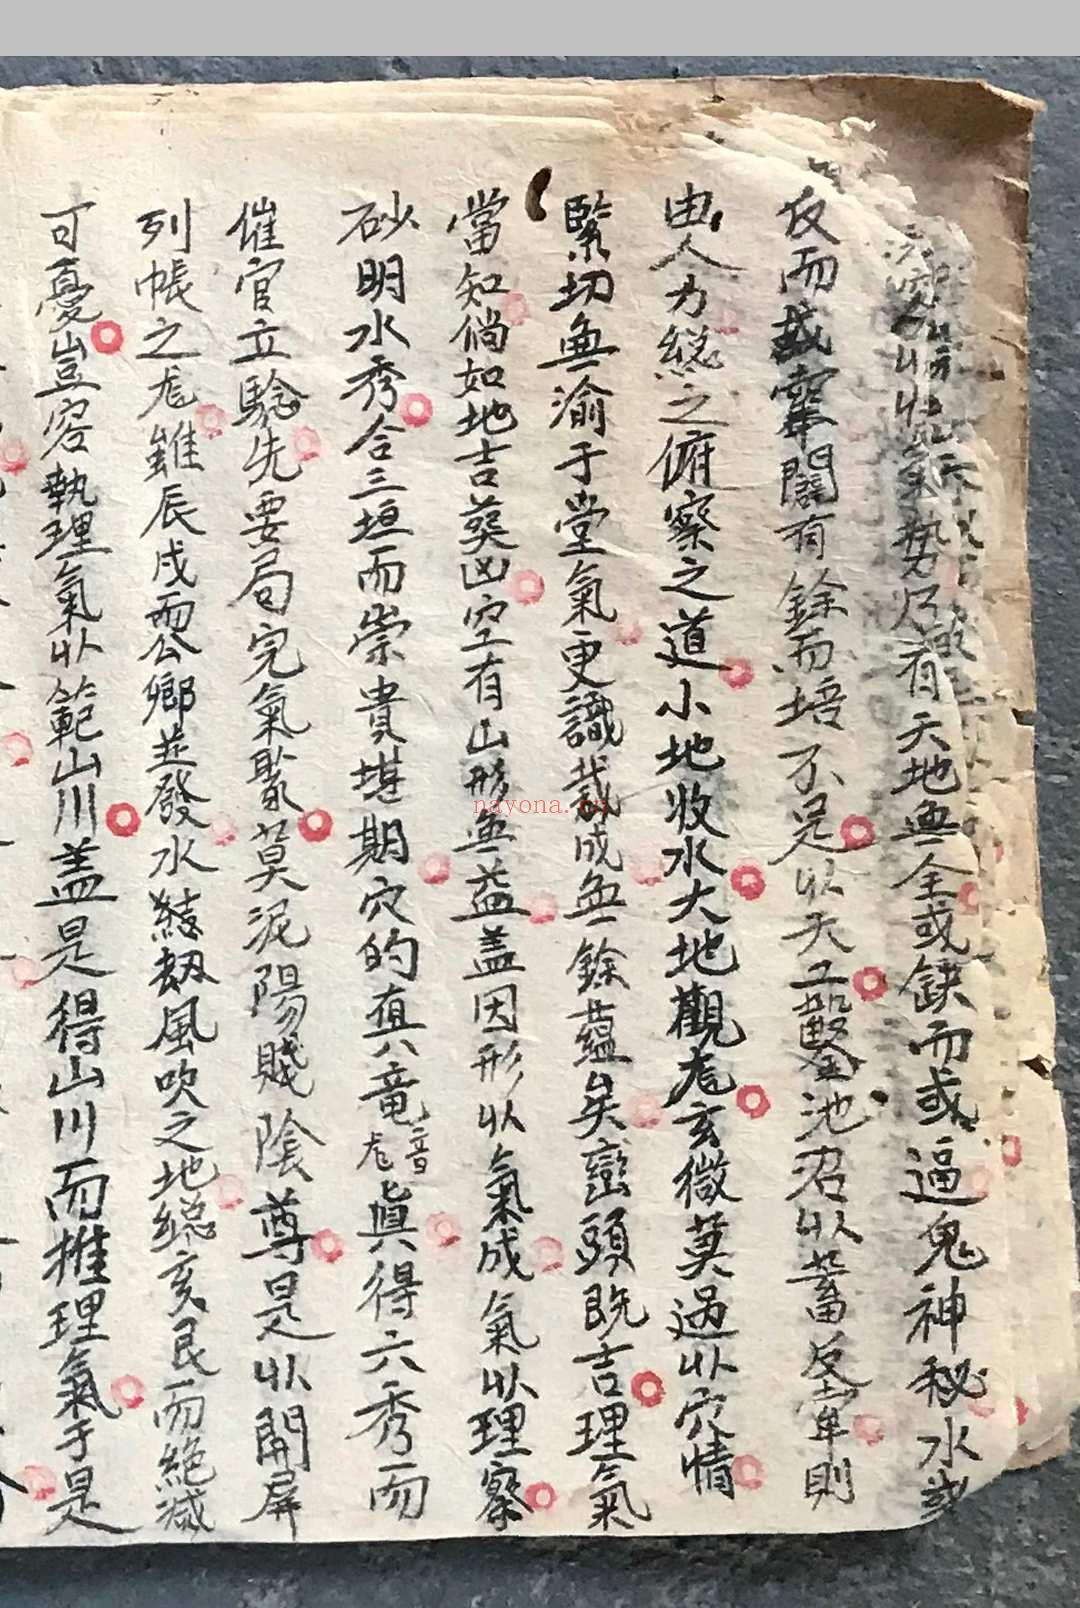 勢乃有天地無全或缺而或逼鬼神秘水或
反而或窜闊有餘而培不足以天工鑿池沼以蓄反牽則
由人力総之俯察之道小地收水大地觀尨玄微莫過以穴情
緊切無渝于堂氣更識裁成無餘蘊矣巒頭既吉理氣
當知倘如地吉葵凶空有山形無益盖因形以氣成氣以理察
砂明水秀合三垣而崇貴堪期穴的真八竜音尨眞得六秀而
催官立騐先要局完氣聚莫泥陽賤陰尊是以開屏
列帳之尨雖辰戌而公鄉並發水䋫刼風吹之地総亥艮而絶滅
可憂豈容執理氣以範山川盖是得山川而推理氣于是
nayona.cn